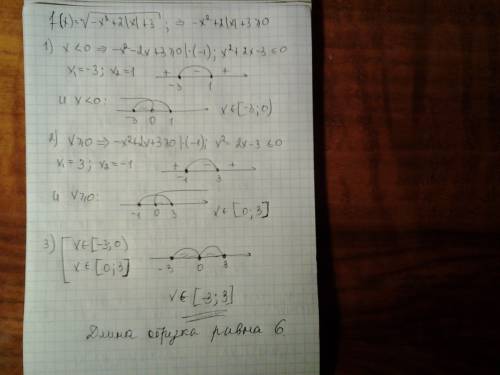 f(x)=√(-x²+2|x|+3) ; ⇒ -x²+2|x|+3⩾0
1) x<0 ⇒ -x²-2x+3⩾0 |·(-1); x²+2x-3⩽0
x₁=-3; x₂=1 + - + -3 1
и x<0: -3 0 1 x∈[-3;0)
2) x⩾0 ⇒ -x²+2x+3⩾0 |·(-1); x²-2x-3⩽0
x₁=3; x₂=-1 + - + -1 3
и x⩾0: -1 0 3 x∈[0;3]
3) [ x∈[-3;0)
x∈[0;3] -3 0 3
x∈[-3;3]
Длина отрезка равна 6.